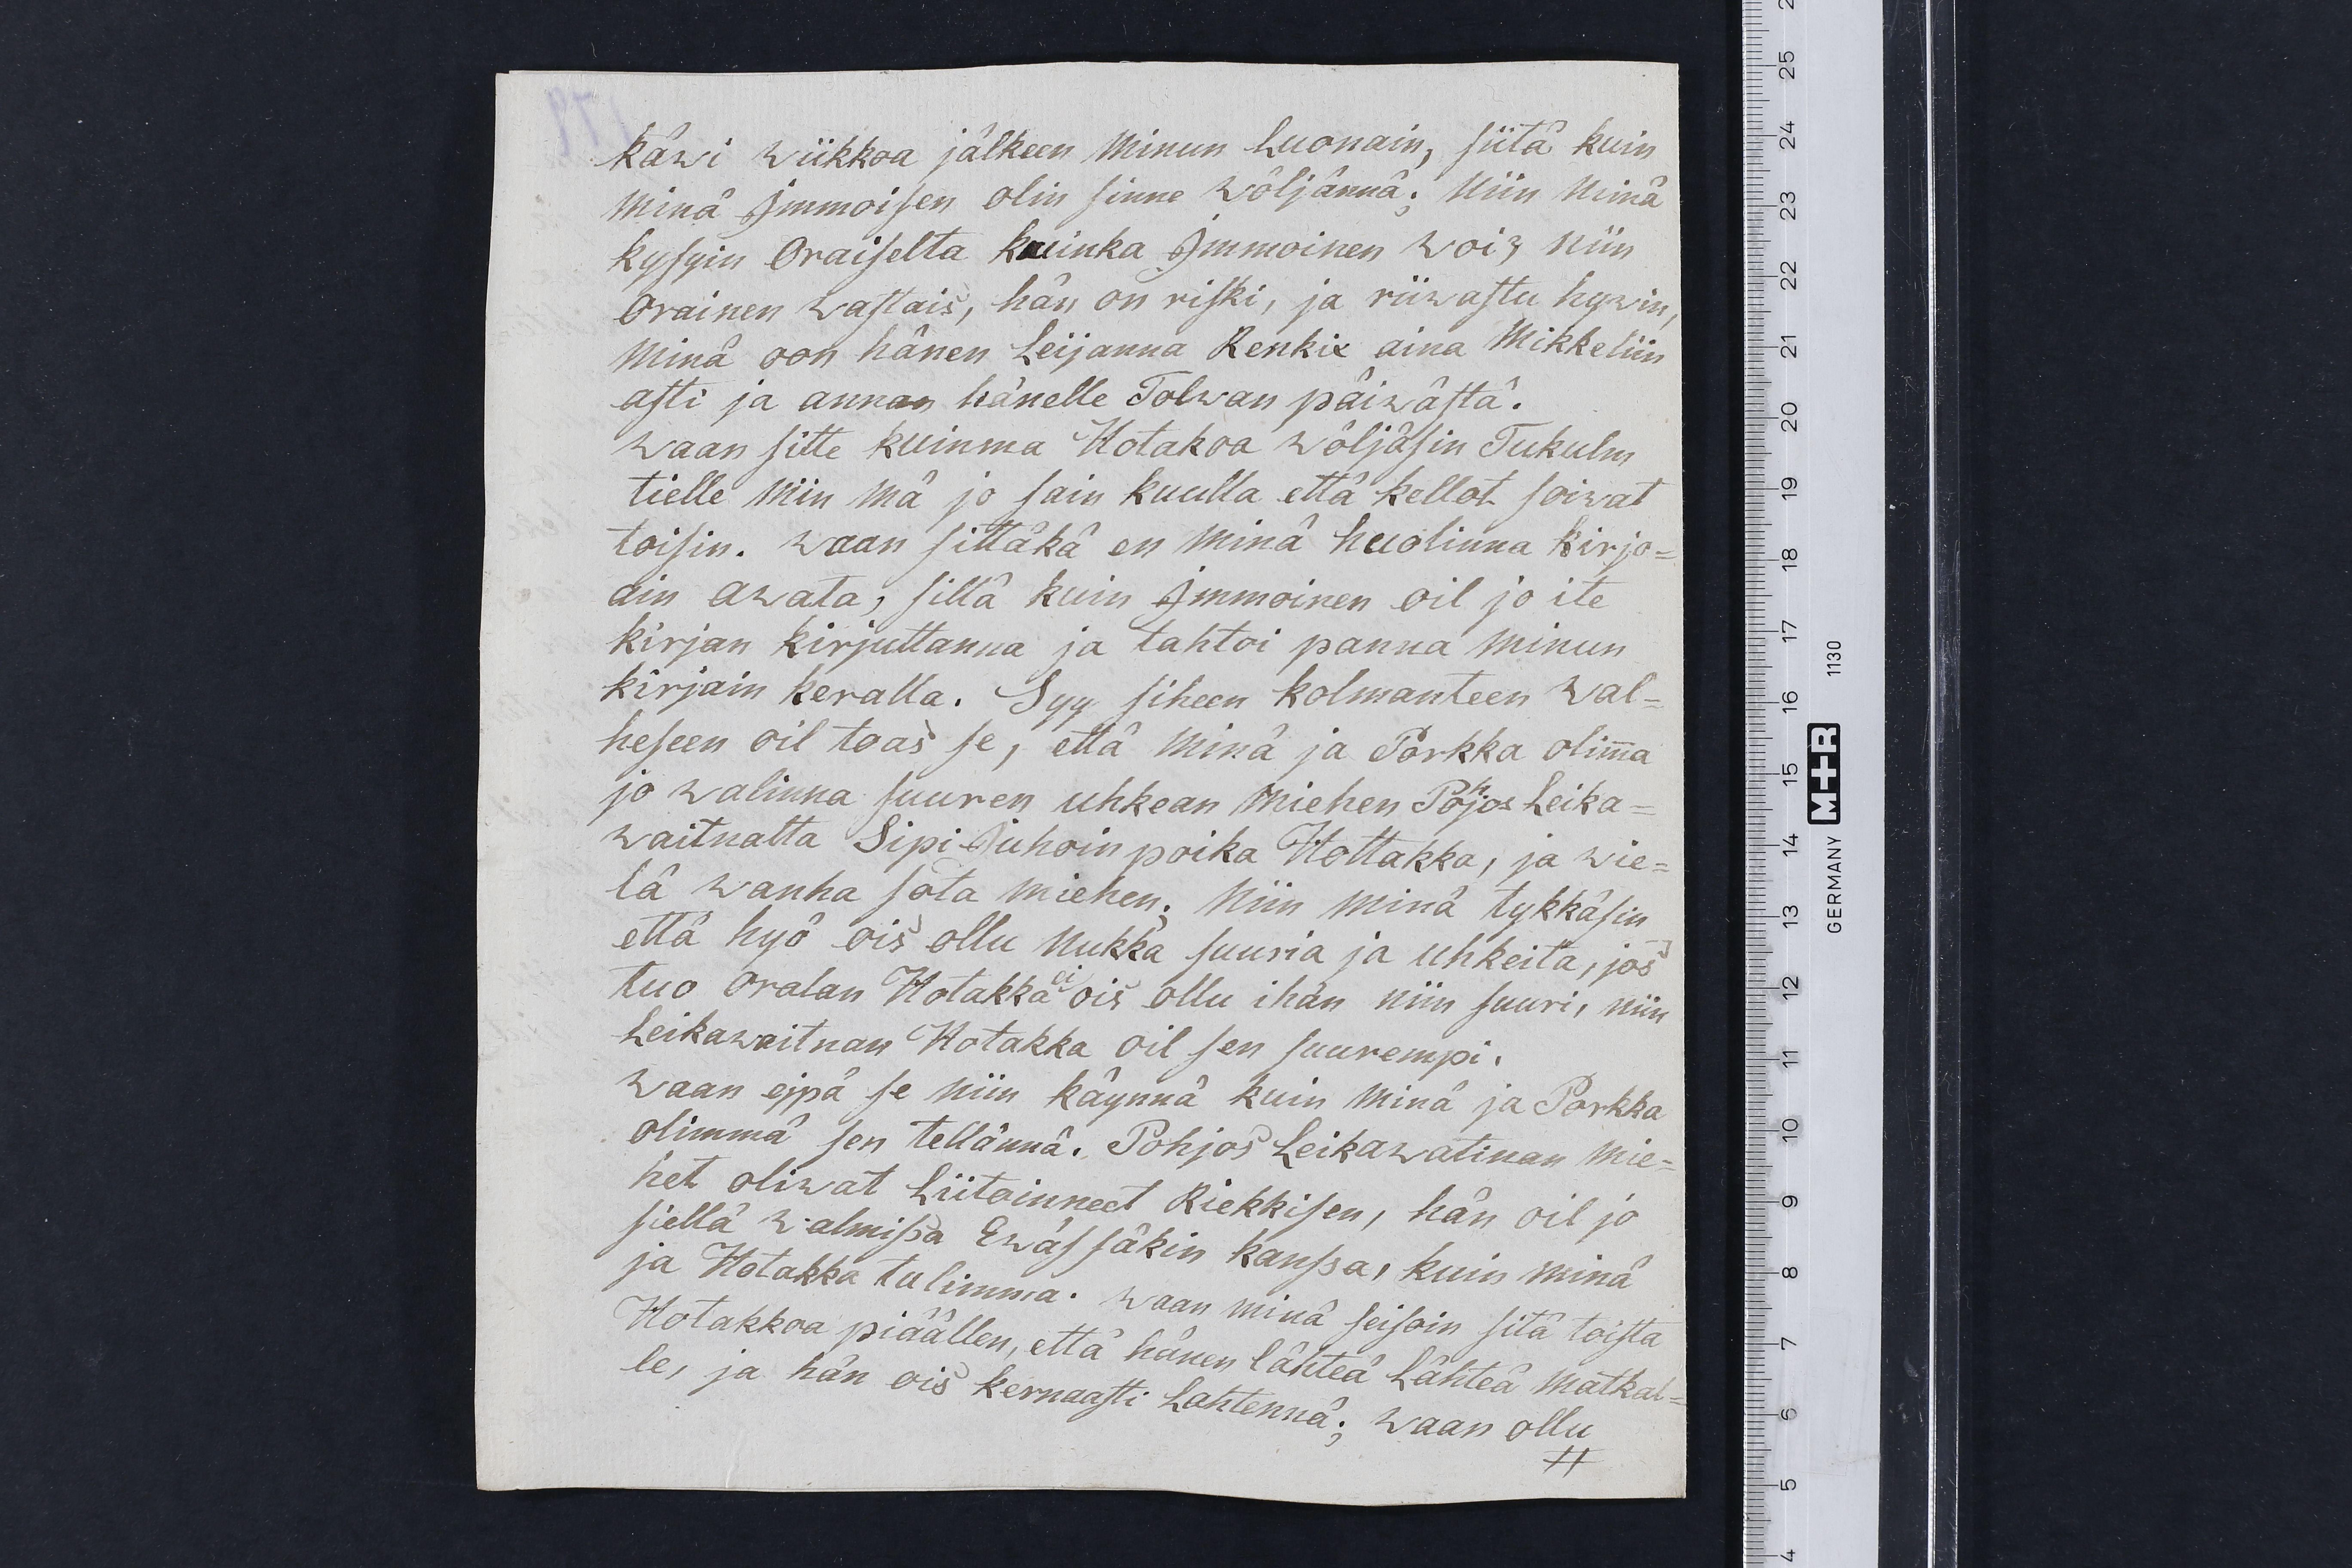 käwi wiikkoa jälkeen minun luonain, siitä kuin
minä Jmmoisen olin sinne wöljännä; niin minä
kysyin Oraiselta kuinka Jmmoinen woiz niin
Orainen wastais, hän on riski, ja riiwastu hywin,
minä oon hänen Leijanna Renkix aina Mikkeliin
asti ja annan hänelle Tolwan päiwästä.
waan sitte kuinma Hotakoa wöljäsin Tukulm
tielle niin mä jo sain kuulla että kellot soiwat
toisin. waan sittäkä en minä huolinna kirjo=
ain awata, sillä kuin Jmmoinen oil jo ite
kirjan kirjuttanna ja tahtoi panna minun
kirjain keralla. Syy siheen kolmanteen wal=
heseen oil toas se, että minä ja Porkka olim̅a
jo walinna suuren uhkean miehen Pohjos Leika=
waitnalta Sipi Juhoin poika Hottakka, ja wie=
lä wanha sota miehen; niin minä tykkäsin
että hyö ois ollu nukka suuria ja uhkeita, jos
tuo Oralan Hotakka ei ois ollu ihan niin suuri, niin
Leikawaitnan Hotakka oil sen suurempi.
waan ejpä se niin käynnä kuin minä ja Porkka
olimmä sen tellännä. Pohjos Leikawatinan mie=
het oliwat Liitoinneet Riekkisen, hän oil jo
siellä walmissa Ewässäkin kanssa, kuin minä
ja Hotakka tulimma. waan minä seisoin sitä toista
Hotakkoa piäällen, että hänen lähteä Lähteä matkal=
le, ja hän ois kernaasti Lahtennä; waan ollu
1130
GERMANY M+R
4 5 6 7 8 9 10 11 12 13 14 15 16 17 18 19 20 21 22 23 24 25